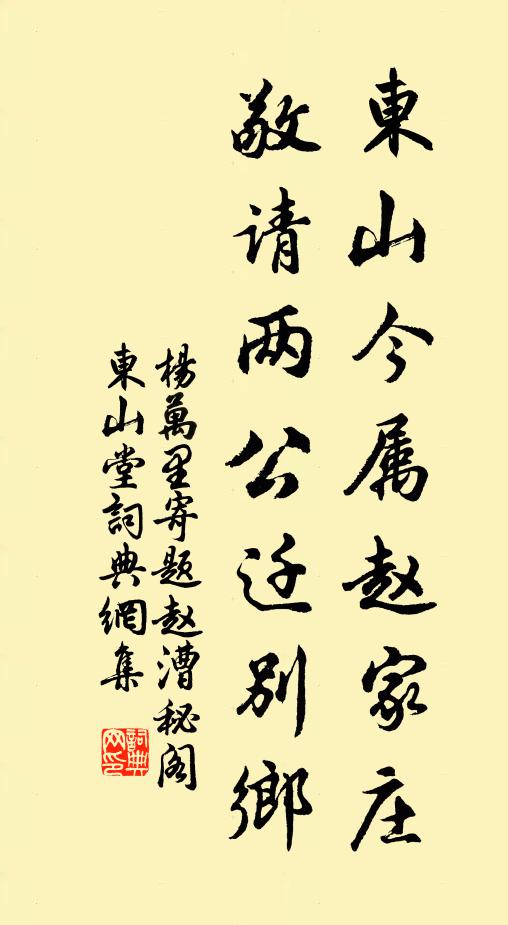 東山今属赵家庄
敬请两公迁别鄉
楊萬里寄題赵漕秘阁
東山堂詞典網集
詞典网印